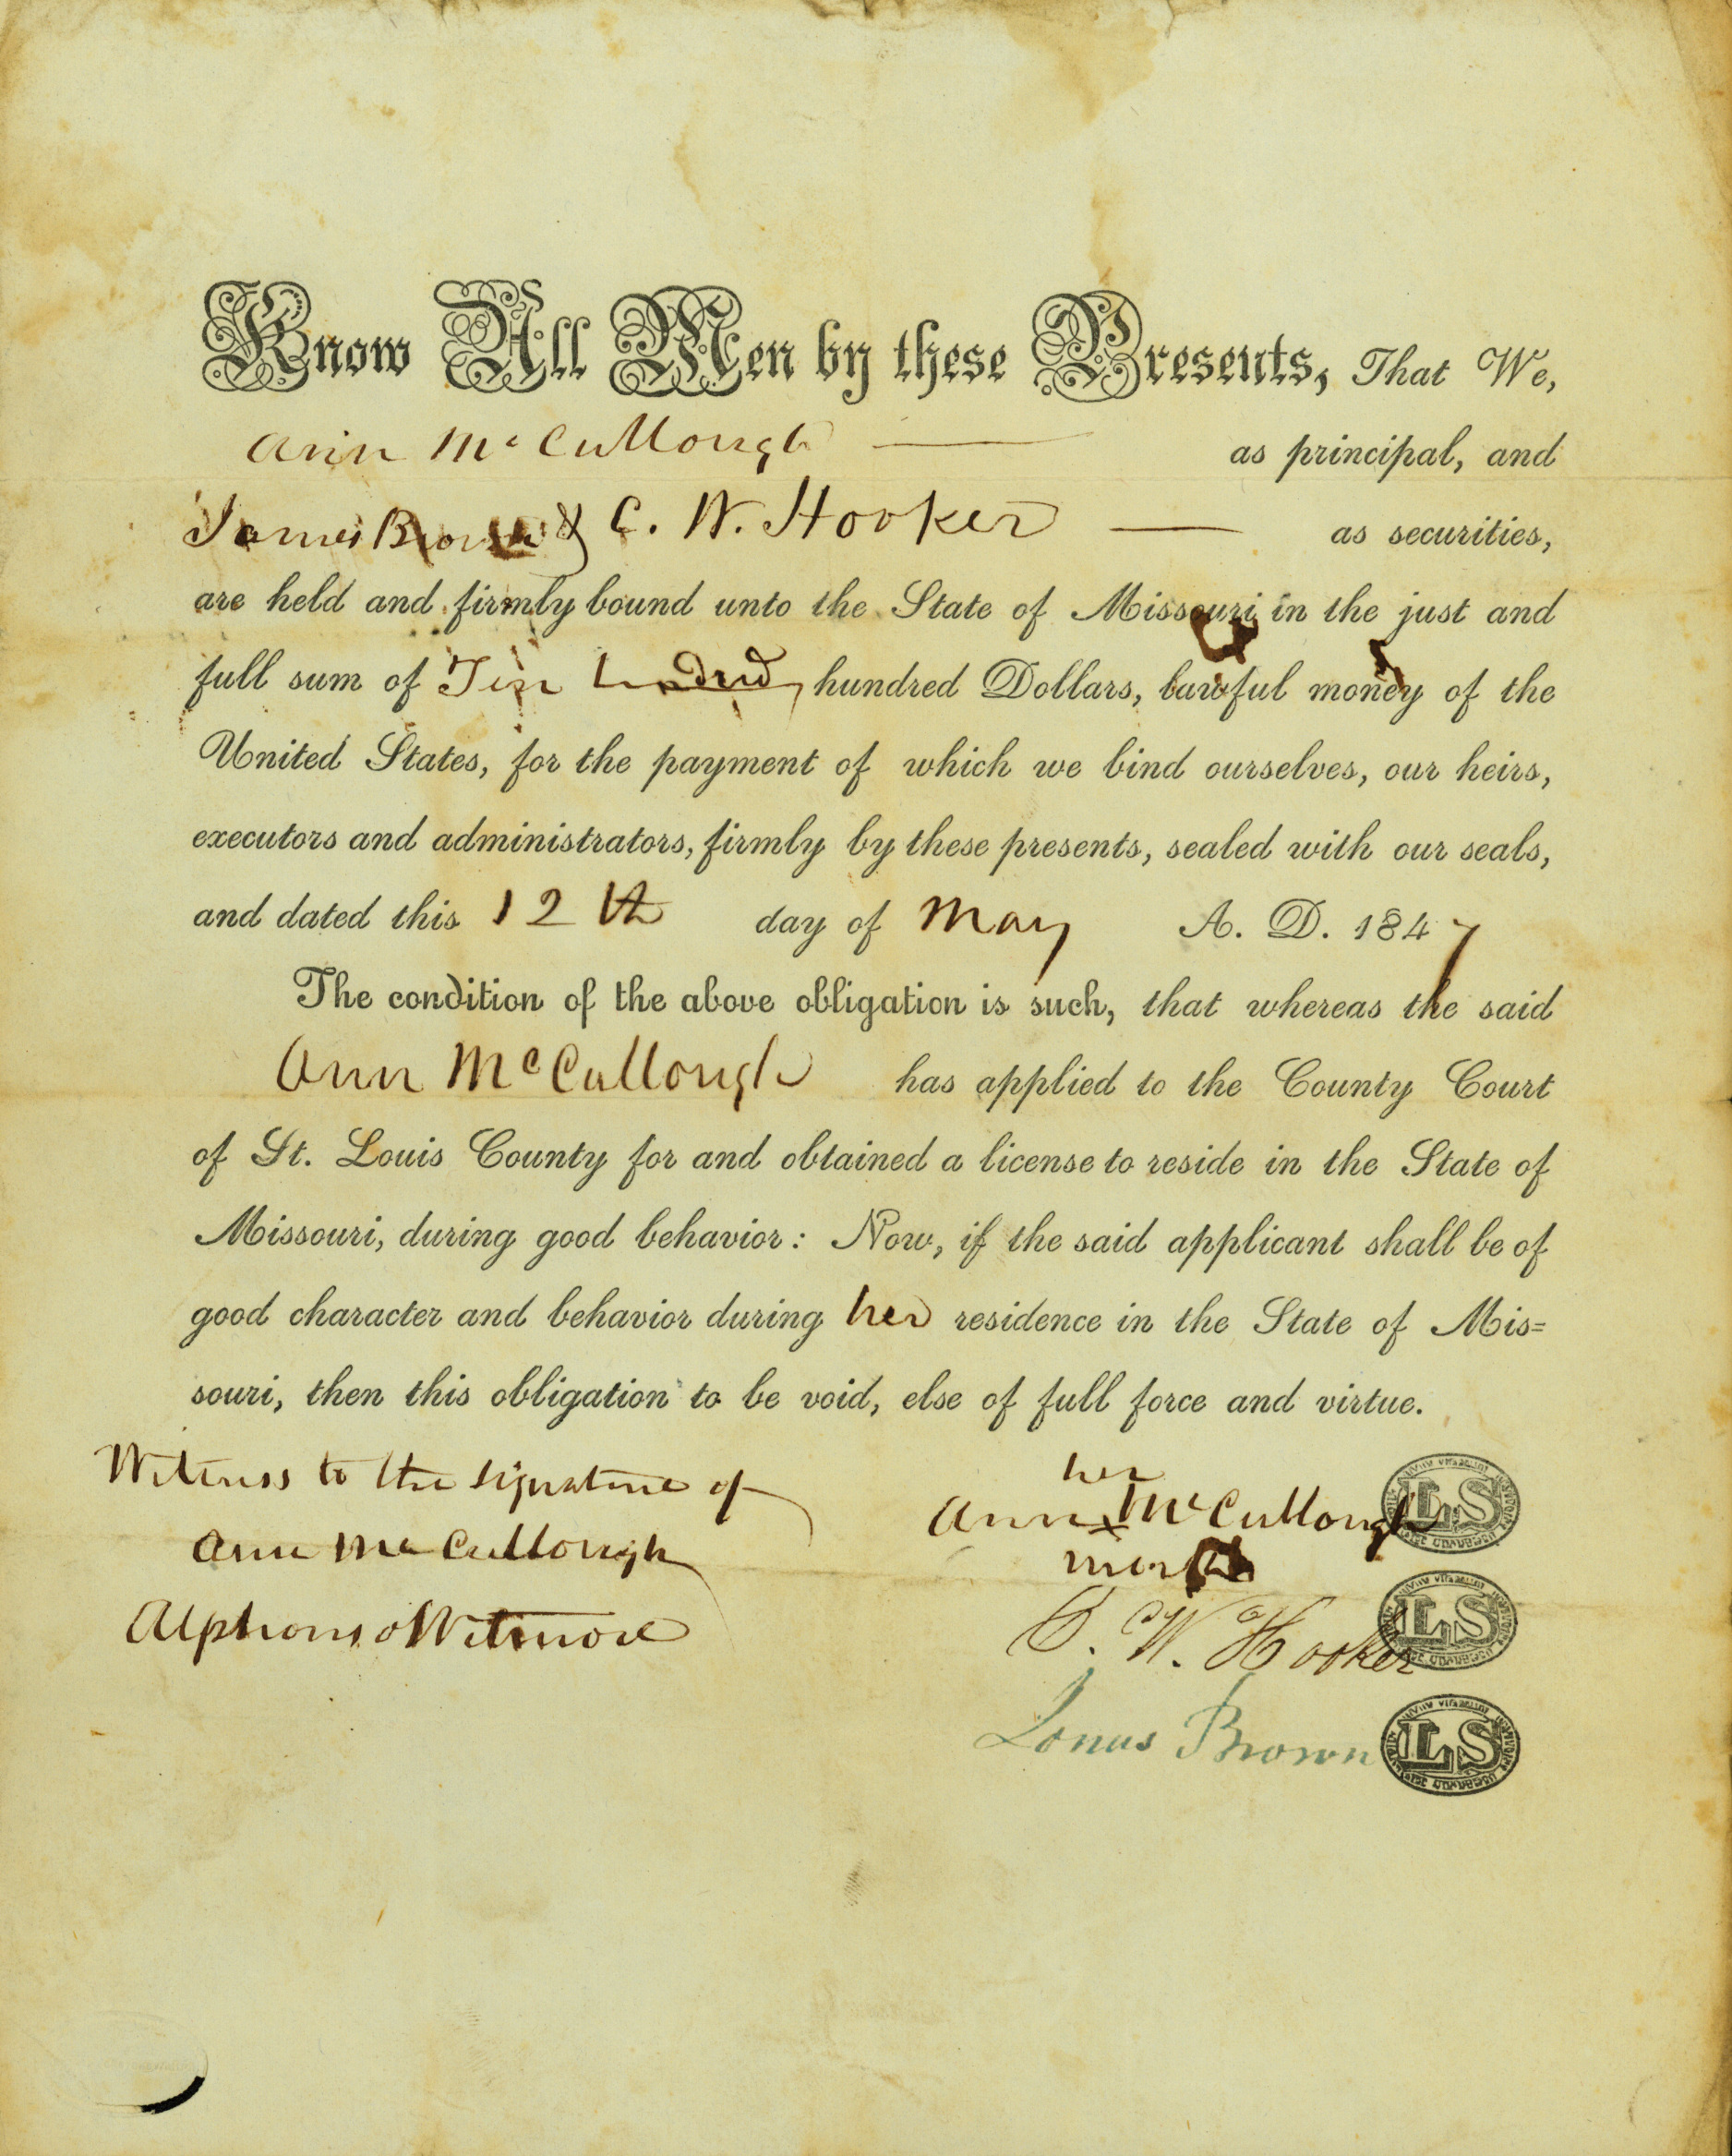 Know All Men by these Presents, That We,
Ann McCullough as principal, and
James Brown & C. W. Hooker as securities,
are held and firmly bound unto the State of Missouri in the just and
full sum of Ten hundred hundred Dollars, lawful money of the
United States, for the payment of which we bind ourselves, our heirs,
executors and administrators, firmly by these presents, sealed with our seals,
and dated this 12th day of May A. D. 1847
The condition of the above obligation is such, that whereas the said
Ann McCullough has applied to the County Court
of St. Louis County for and obtained a license to reside in the State of
Missouri, during good behavior: Now, if the said applicant shall be of
good character and behavior during her residence in the State of Mis=
souri, then this obligation to be void, else of full force and virtue.
Witness to the signature of
Ann McCullough
Alphonso Wetmore
her
Ann x McCullough LS
mark
C. W. Hooker LS
Brown LS